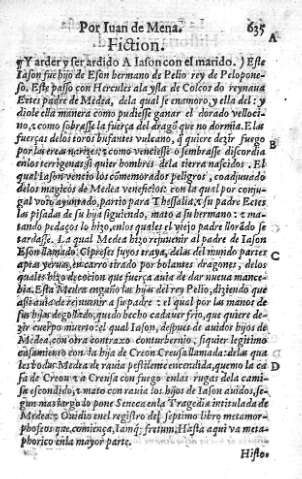 Por Iuan de Mena. 635
Fiction.
A
¶ Y arder y ser ardido A Iason con el marido.) Este
Iason fue hijo de Eson hermano de Pelio rey de Pelopone-
so. Este passo con Hercules ala ysla de Colcos do reynaua
Eetes padre de Medea, dela qual se enamoro, y ella del: y
diole ella manera como pudiesse ganar el dorado velloci-
no, z como sobrasse la fuerça del dragõ que no dormia. E las
fuerças delos toros bufantes vulcano, q̃ quiere dezir fuego
por las narizes: z como venciesse o sembrasse discordia
B
enlos terrigenas: si quier hombres dela tierra nascidos. El
qual Iason vencio los cõmemorados peligros, coadjuuado
delos magicos de Medea veneficios: con la qual por conju-
gal voto ayuntado, partio para Thessalia, z su padre Eetes
las pisadas de su hija siguiendo, mato a su hermano: z ma-
tando pedaços lo hizo, enlos quales el viejo padre llorãdo se
tardasse. La qual Medea hizo rejuuenir al padre de Iason
Eson llamado:
C
en carro tirado por bolantes dragones, delos
quales hizo
bia. Esta Medea engaño las hijas del rey Pelio, diziendo que
assi auia de rejuuenir a su padre: el qual por las manos de
sus hijas degollado, quedo hecho cadauer frio, que quiere de-
zir cuerpo muerto: el qual Iason, despues de auidos hijos de
Medea, con otra contraxo contubernio, siquier legitimo
casamiento con la hija de Creon Creusa llamada: delas qua
D
les Medea de rauia pestilente encendida, quemo la ca
sa de Creon z a Creusa con fuego enlas rugas dela cami-
sa escondido, z mato con rauia los hijos de Iason auidos, se-
gun mas largo lo pone Seneca enla Tragedia intitulada de
Medea: z Ouidio enel registro del septimo libro metamor-
phoseos que comiença, Iamq; fretum. Hasta aqui va meta-
phorico enla mayor parte.
Histo-